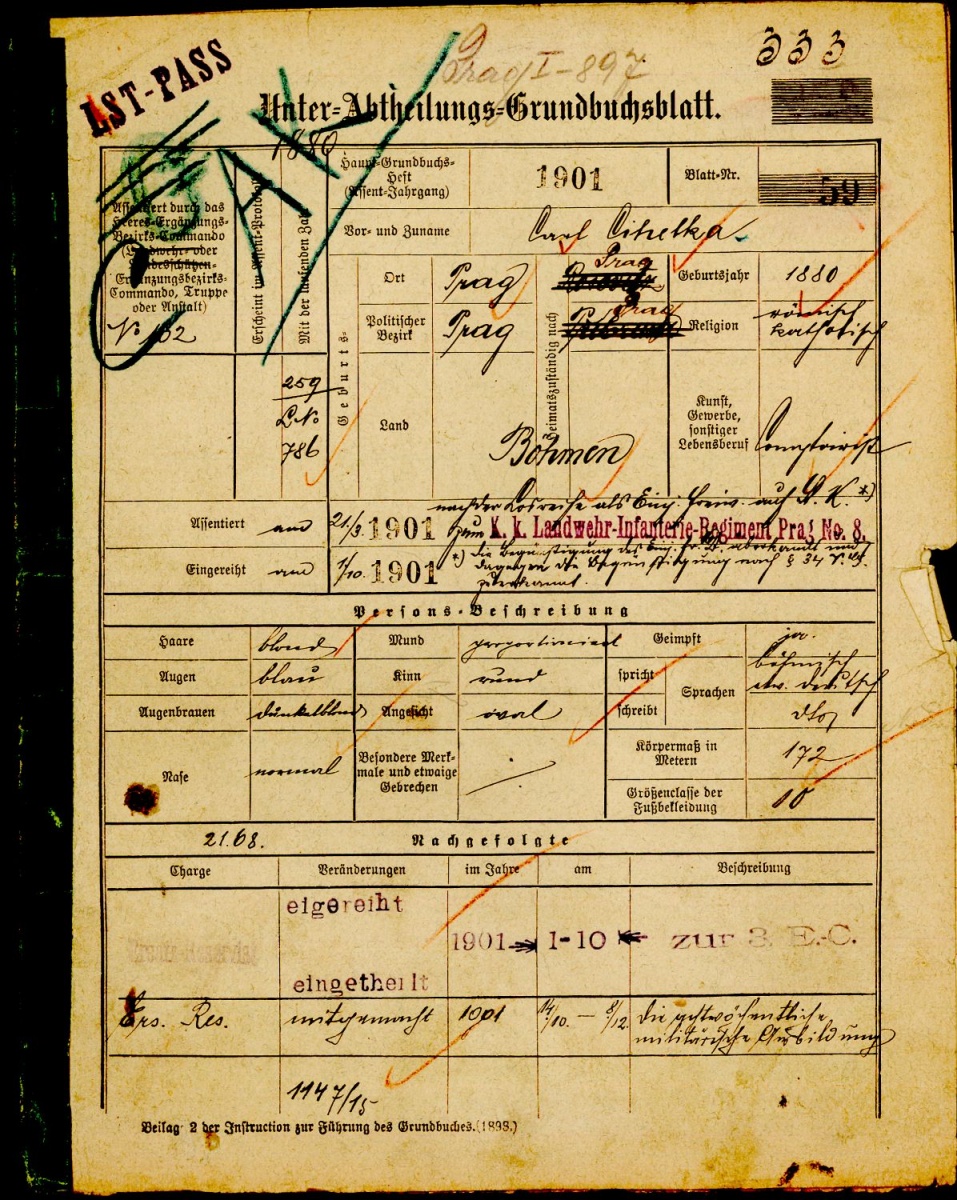 LST-PASS
Prag I-897
333
Unter-Abtheilungs-Grundbuchsblatt.
1880
Assentirt durch das
Heeres-Ergänzungs-
Bezirks-Commando
(Landwehr- oder
Landesschützen-
Ergänzungsbezirks-
Commando, Truppe
oder Anstalt)
No 132
Erscheint im Assent-Protokoll
Mit der laufenden Zahl
259
L No
786
Haupt-Grundbuchs-
Heft
(Assent-Jahrgang)
1901
Blatt-Nr.
59
Vor- und Zuname
Carl Cihelka
Geburts-
Ort
Prag
Heimatszuständig nach
Prag
Geburtsjahr
1880
Politischer
Bezirk
Prag
Prag
Religion
römisch
katholisch
Land
Böhmen
Kunst,
Gewerbe,
sonstiger
Lebensberuf
Comptoirist
Assentiert am 21/3. 1901
nach der Losreihe als Einj. Freiw. auf St. K. *)
zum K. k. Landwehr-Infanterie-Regiment Prag No. 8.
Eingereiht am 1/10. 1901
*) Die Begünstigung des Einj. Fr. D. aberkannt und
dagegen die Begünstigung nach § 34 W. G.
zuerkannt.
Persons-Beschreibung
Haare blond
Mund proportionirt
Geimpft ja.
Augen blau
Kinn rund
spricht
Sprachen
böhmisch
etw. deutsch
Augenbrauen dunkelblond
Angesicht oval
schreibt
dto
Nase normal
Besondere Merk-
male und etwaige
Gebrechen
Körpermaß in
Metern
172
Größenclasse der
Fußbekleidung
10
2168.
Nachgefolgte
Charge
Veränderungen
im Jahre
am
Beschreibung
eigereiht
1901 1-10 zur 3. E.-C.
eingetheilt
Ers. Res.
mitgemacht
1901
14/10. — 8/12.
die achtwöchentliche
militärische Ausbildung
1147/15
Beilage 2 der Instruction zur Führung des Grundbuches. (1898.)